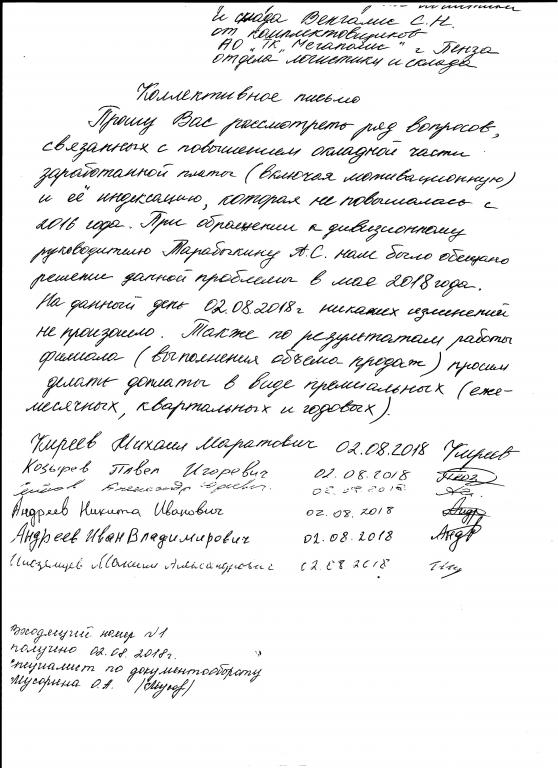 и склада Венгалис С.Н.
от комплектовщиков
АО "ТК "Мегаполис" г Пенза
отдела логистики и склада
Коллективное письмо
Прошу Вас рассмотреть ряд вопросов,
связанных с повышением окладной части
заработанной платы (включая мотивационную)
и её индексацию, которая не повышалась с
2016 года. При обращении к дивизионному
руководителю Тарабыкину А.С. нам было обещано
решение данной проблемы в мае 2018 года.
На данный день 02.08.2018г никаких изменений
не произошло. Также по результатам работы
филиала (выполнения объема продаж) просим
делать доплаты в виде премиальных (еже-
месячных, квартальных и годовых).
Киреев Михаил Маратович 02.08.2018 Киреев
Козырев Павел Игоревич 02.08.2018
Александр 02.08.2018
Андреев Никита Иванович 02.08.2018 Андр
Андреев Иван Владимирович 02.08.2018 Андр
Максим Александрович 02.08.2018
Входящий номер №1
получено 02.08.2018г.
Специалист по документообороту
Мусорина О.А. (Мусор)